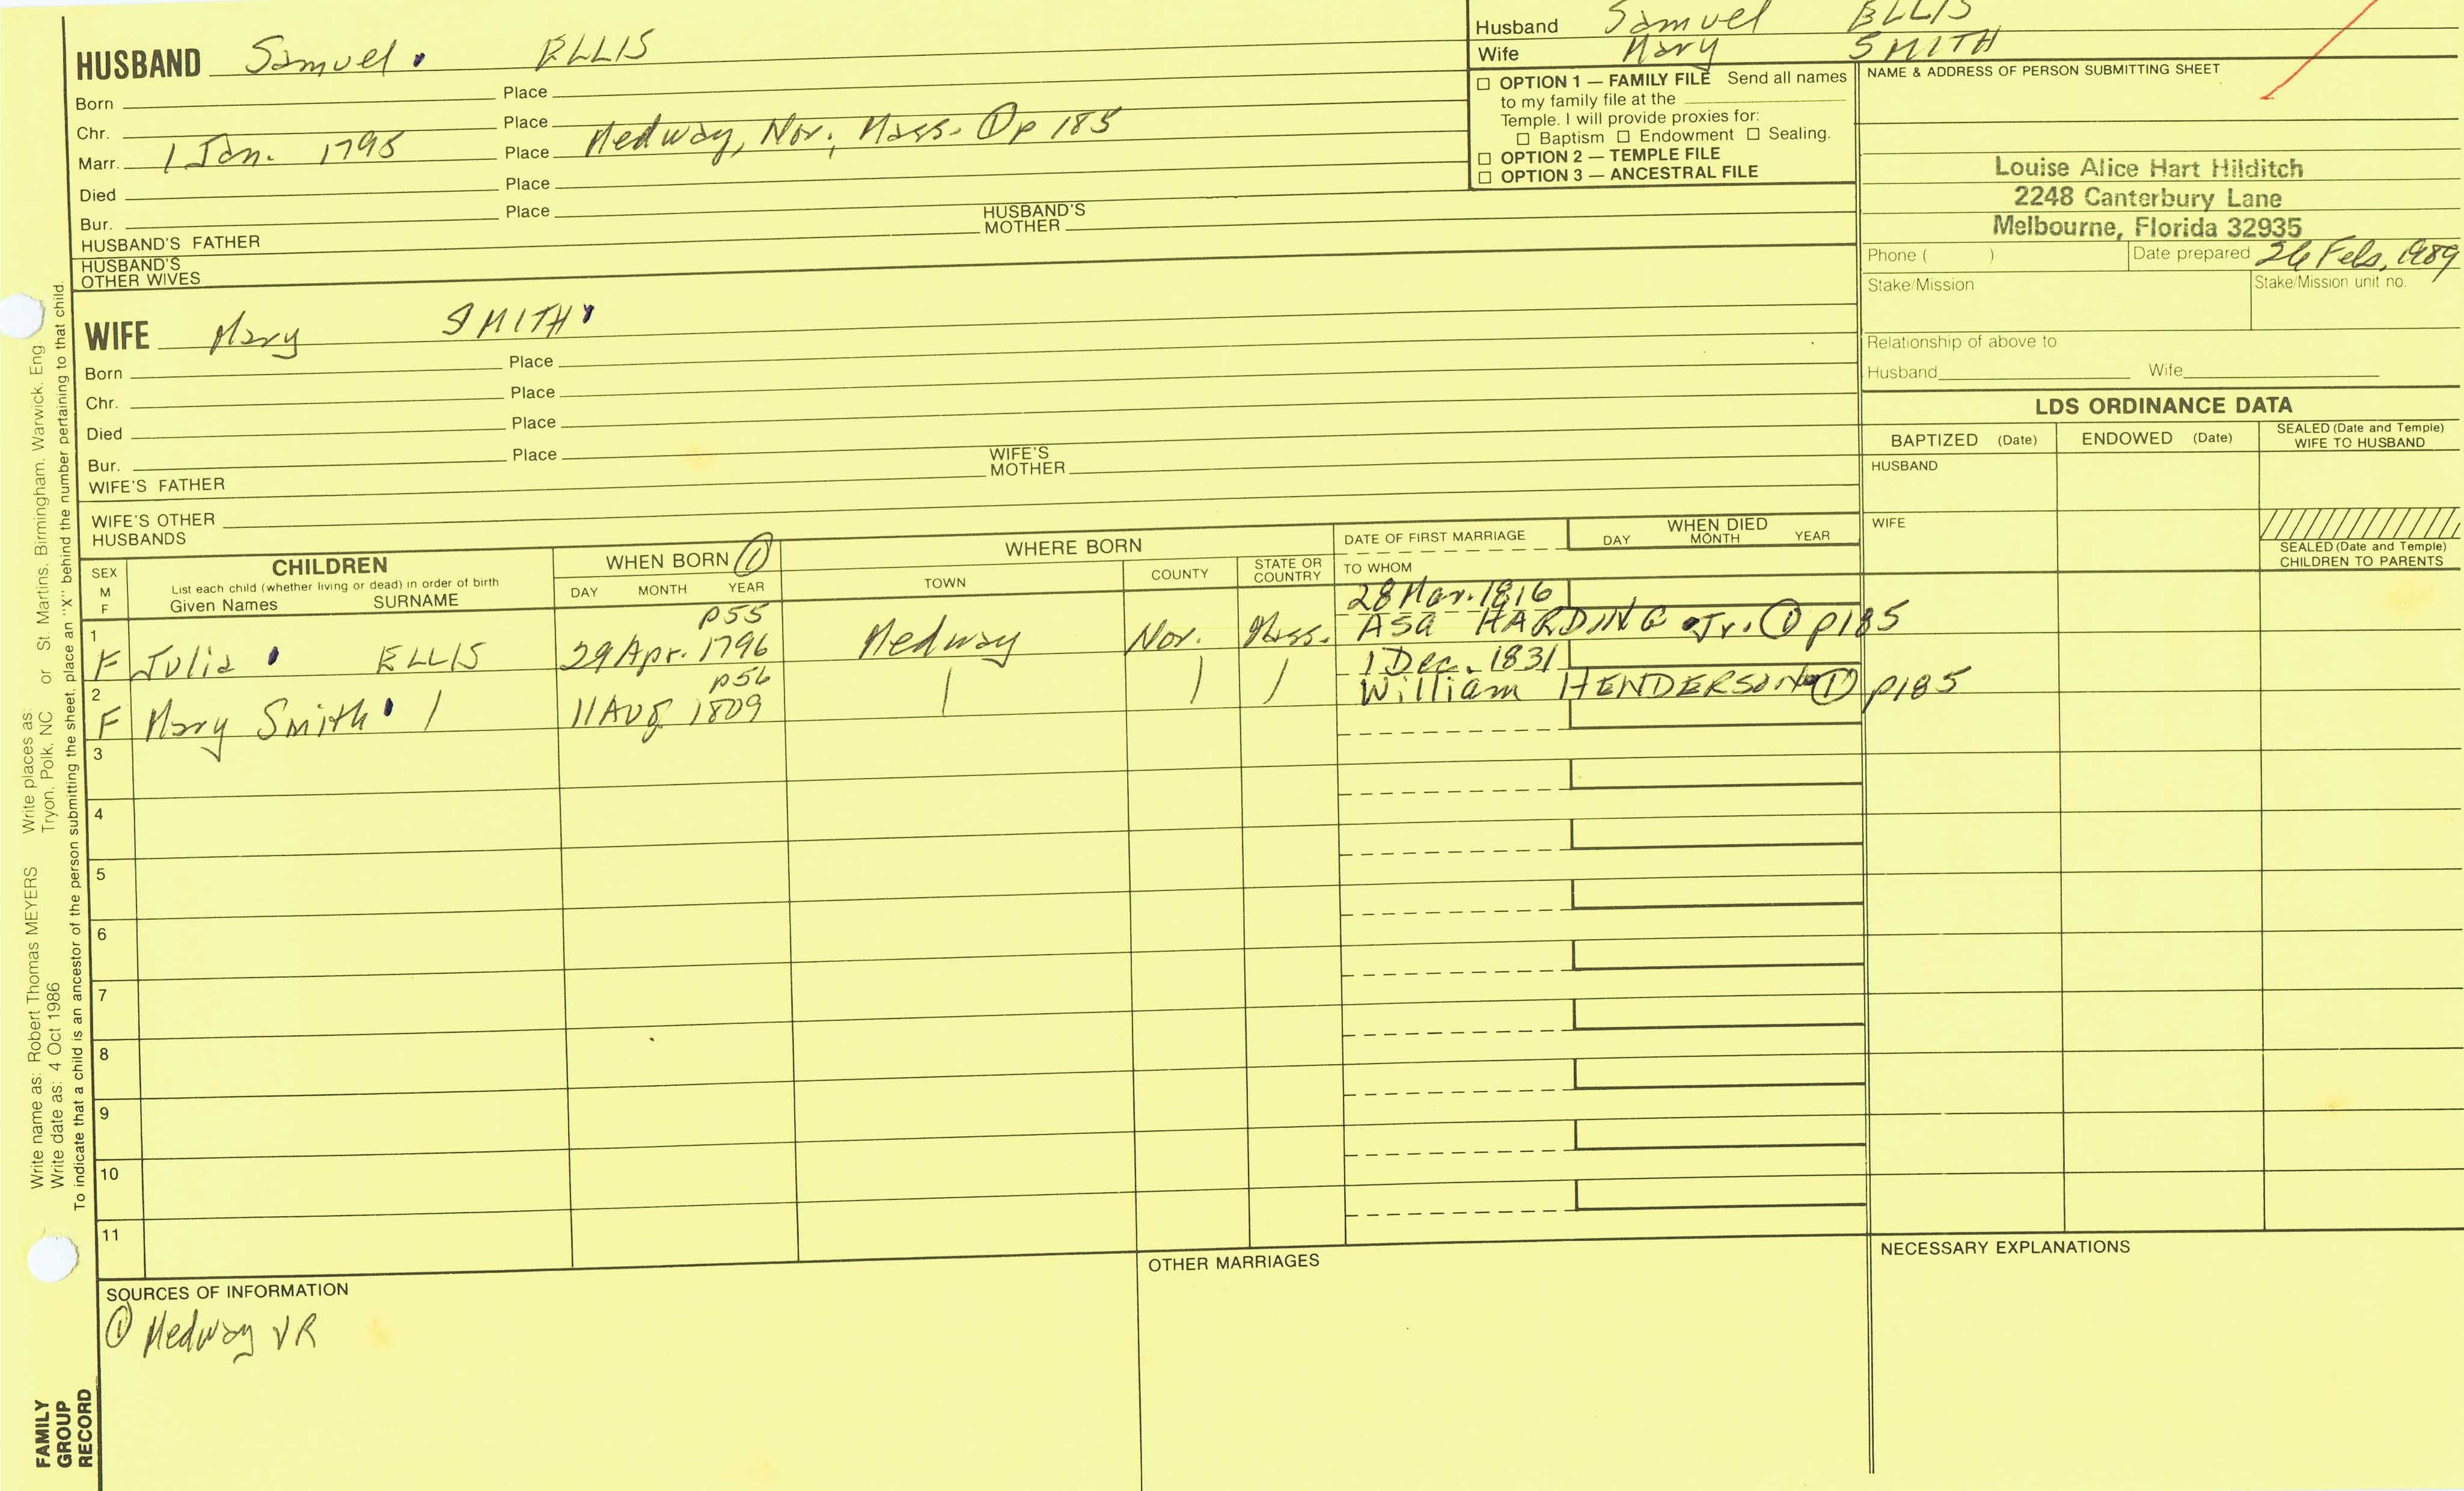 HUSBAND Samuel ELLIS
Born Place
Chr. Place
Marr. 1 Jan. 1795 Place Medway, Nor., Mass. ① p 185
Died Place
Bur. Place
HUSBAND'S FATHER HUSBAND'S MOTHER
HUSBAND'S OTHER WIVES
WIFE Mary SMITH
Born Place
Chr. Place
Died Place
Bur. Place
WIFE'S FATHER WIFE'S MOTHER
WIFE'S OTHER HUSBANDS
Husband Samuel ELLIS
Wife Mary SMITH
☐ OPTION 1 — FAMILY FILE Send all names
to my family file at the
Temple. I will provide proxies for:
☐ Baptism ☐ Endowment ☐ Sealing.
☐ OPTION 2 — TEMPLE FILE
☐ OPTION 3 — ANCESTRAL FILE
NAME & ADDRESS OF PERSON SUBMITTING SHEET
Louise Alice Hart Hilditch
2248 Canterbury Lane
Melbourne, Florida 32935
Phone ( ) Date prepared 26 Feb, 1989
Stake/Mission Stake/Mission unit no.
Relationship of above to
Husband Wife
LDS ORDINANCE DATA
BAPTIZED (Date) ENDOWED (Date) SEALED (Date and Temple) WIFE TO HUSBAND
HUSBAND
WIFE
SEALED (Date and Temple) CHILDREN TO PARENTS
SEX M F
CHILDREN
List each child (whether living or dead) in order of birth
Given Names SURNAME
WHEN BORN ①
DAY MONTH YEAR
WHERE BORN
TOWN COUNTY STATE OR COUNTRY
DATE OF FIRST MARRIAGE
TO WHOM
WHEN DIED
DAY MONTH YEAR
p55 28 Mar. 1816
1 F Julia ELLIS 29 Apr. 1796 Medway Nor. Mass. Asa HARDING Jr. ① p185
p56 1 Dec. 1831
2 F Mary Smith / 11 Aug 1809 | | / William HENDERSON ① p185
3
4
5
6
7
8
9
10
11
SOURCES OF INFORMATION
① Medway VR
OTHER MARRIAGES
NECESSARY EXPLANATIONS
Write name as: Robert Thomas MEYERS Write places as: St. Martins, Birmingham, Warwick, Eng.
Write date as: 4 Oct 1986 Tryon, Polk, NC or
To indicate that a child is an ancestor of the person submitting the sheet, place an "X" behind the number pertaining to that child.
FAMILY
GROUP
RECORD